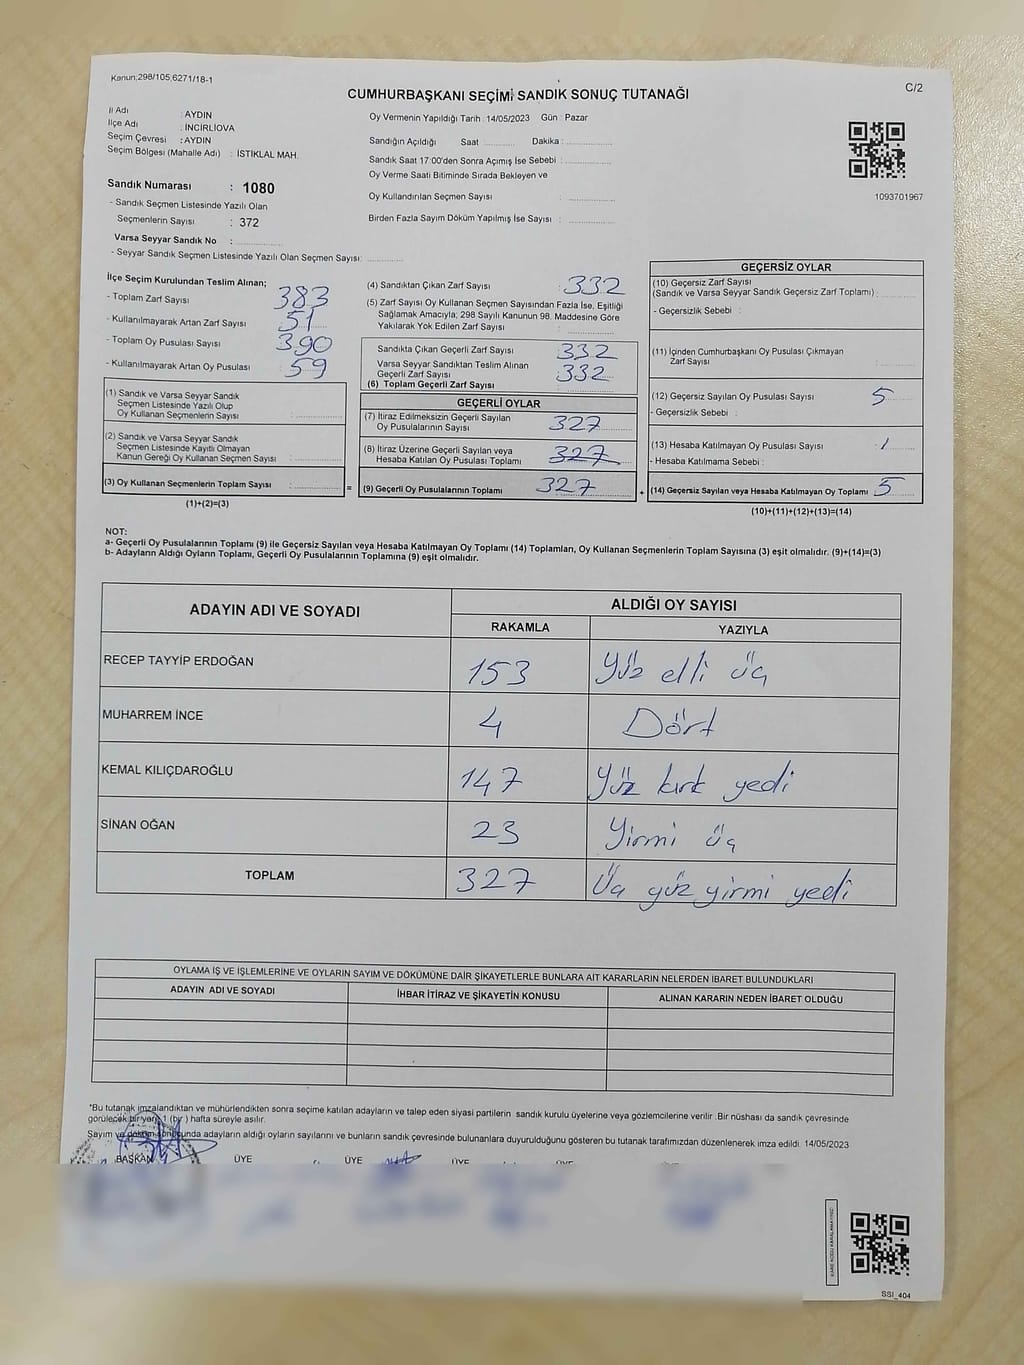 Kanun;298/105,6271/18-1
C/2
CUMHURBAŞKANI SEÇİMİ SANDIK SONUÇ TUTANAĞI
İl Adı : AYDIN
İlçe Adı : İNCİRLİOVA
Seçim Çevresi : AYDIN
Seçim Bölgesi (Mahalle Adı) : İSTİKLAL MAH.
Sandık Numarası : 1080
- Sandık Seçmen Listesinde Yazılı Olan
Seçmenlerin Sayısı : 372
Varsa Seyyar Sandık No :
- Seyyar Sandık Seçmen Listesinde Yazılı Olan Seçmen Sayısı:
Oy Vermenin Yapıldığı Tarih : 14/05/2023 Gün : Pazar
Sandığın Açıldığı Saat Dakika :
Sandık Saat 17:00'den Sonra Açımış İse Sebebi :
Oy Verme Saati Bitiminde Sırada Bekleyen ve
Oy Kullandırılan Seçmen Sayısı :
Birden Fazla Sayım Döküm Yapılmış İse Sayısı :
1093701967
İlçe Seçim Kurulundan Teslim Alınan;
- Toplam Zarf Sayısı 383
- Kullanılmayarak Artan Zarf Sayısı 51
- Toplam Oy Pusulası Sayısı 390
- Kullanılmayarak Artan Oy Pusulası 59
(1) Sandık ve Varsa Seyyar Sandık
Seçmen Listesinde Yazılı Olup
Oy Kullanan Seçmenlerin Sayısı :
(2) Sandık ve Varsa Seyyar Sandık
Seçmen Listesinde Kayıtlı Olmayan
Kanun Gereği Oy Kullanan Seçmen Sayısı :
(3) Oy Kullanan Seçmenlerin Toplam Sayısı :
(1)+(2)=(3)
(4) Sandıktan Çıkan Zarf Sayısı : 332
(5) Zarf Sayısı Oy Kullanan Seçmen Sayısından Fazla İse, Eşitliği
Sağlamak Amacıyla; 298 Sayılı Kanunun 98. Maddesine Göre
Yakılarak Yok Edilen Zarf Sayısı :
Sandıkta Çıkan Geçerli Zarf Sayısı : 332
Varsa Seyyar Sandıktan Teslim Alınan
Geçerli Zarf Sayısı : 332
(6) Toplam Geçerli Zarf Sayısı
GEÇERLİ OYLAR
(7) İtiraz Edilmeksizin Geçerli Sayılan
Oy Pusulalarının Sayısı : 327
(8) İtiraz Üzerine Geçerli Sayılan veya
Hesaba Katılan Oy Pusulası Toplamı : 327
= (9) Geçerli Oy Pusulalarının Toplamı : 327 +
GEÇERSİZ OYLAR
(10) Geçersiz Zarf Sayısı
(Sandık ve Varsa Seyyar Sandık Geçersiz Zarf Toplamı) :
- Geçersizlik Sebebi :
(11) İçinden Cumhurbaşkanı Oy Pusulası Çıkmayan
Zarf Sayısı :
(12) Geçersiz Sayılan Oy Pusulası Sayısı : 5
- Geçersizlik Sebebi :
(13) Hesaba Katılmayan Oy Pusulası Sayısı : 1
- Hesaba Katılmama Sebebi :
(14) Geçersiz Sayılan veya Hesaba Katılmayan Oy Toplamı : 5
(10)+(11)+(12)+(13)=(14)
NOT:
a- Geçerli Oy Pusulalarının Toplamı (9) ile Geçersiz Sayılan veya Hesaba Katılmayan Oy Toplamı (14) Toplamları, Oy Kullanan Seçmenlerin Toplam Sayısına (3) eşit olmalıdır. (9)+(14)=(3)
b- Adayların Aldığı Oyların Toplamı, Geçerli Oy Pusulalarının Toplamına (9) eşit olmalıdır.
ADAYIN ADI VE SOYADI
ALDIĞI OY SAYISI
RAKAMLA YAZIYLA
RECEP TAYYİP ERDOĞAN 153 Yüz elli üç
MUHARREM İNCE 4 Dört
KEMAL KILIÇDAROĞLU 147 Yüz kırk yedi
SİNAN OĞAN 23 Yirmi üç
TOPLAM 327 Üç yüz yirmi yedi
OYLAMA İŞ VE İŞLEMLERİNE VE OYLARIN SAYIM VE DÖKÜMÜNE DAİR ŞİKAYETLERLE BUNLARA AİT KARARLARIN NELERDEN İBARET BULUNDUKLARI
ADAYIN ADI VE SOYADI İHBAR İTİRAZ VE ŞİKAYETİN KONUSU ALINAN KARARIN NEDEN İBARET OLDUĞU
*Bu tutanak imzalandıktan ve mühürlendikten sonra seçime katılan adayların ve talep eden siyasi partilerin sandık kurulu üyelerine veya gözlemcilerine verilir .Bir nüshası da sandık çevresinde
görülecek bir yere 1 (bir ) hafta süreyle asılır.
Sayım ve döküm sonucunda adayların aldığı oyların sayılarını ve bunların sandık çevresinde bulunanlara duyurulduğunu gösteren bu tutanak tarafımızdan düzenlenerek imza edildi. 14/05/2023
BAŞKAN ÜYE ÜYE ÜYE ÜYE
SSI_404